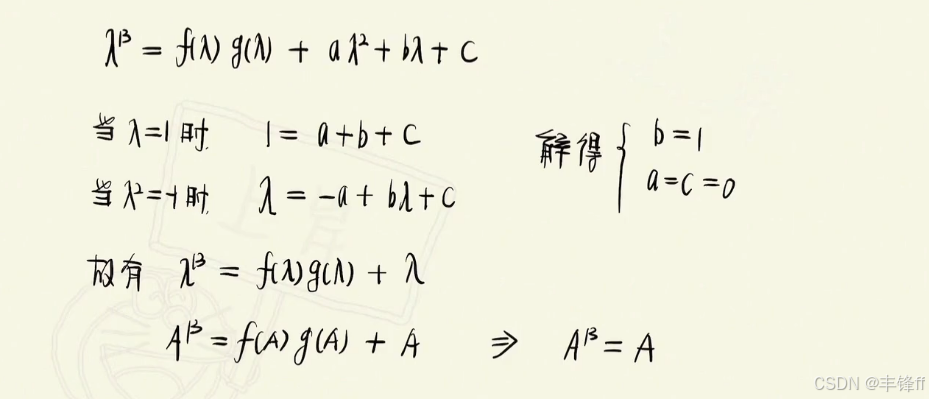 λ¹³ = f(λ) g(λ) + aλ² + bλ + c
当 λ=1 时 1 = a + b + c
当 λ²=-1 时 λ = -a + bλ + c
解得 { b=1
a=c=0
故有 λ¹³ = f(λ)g(λ) + λ
A¹³ = f(A) g(A) + A ⇒ A¹³ = A
CSDN @丰锋ff